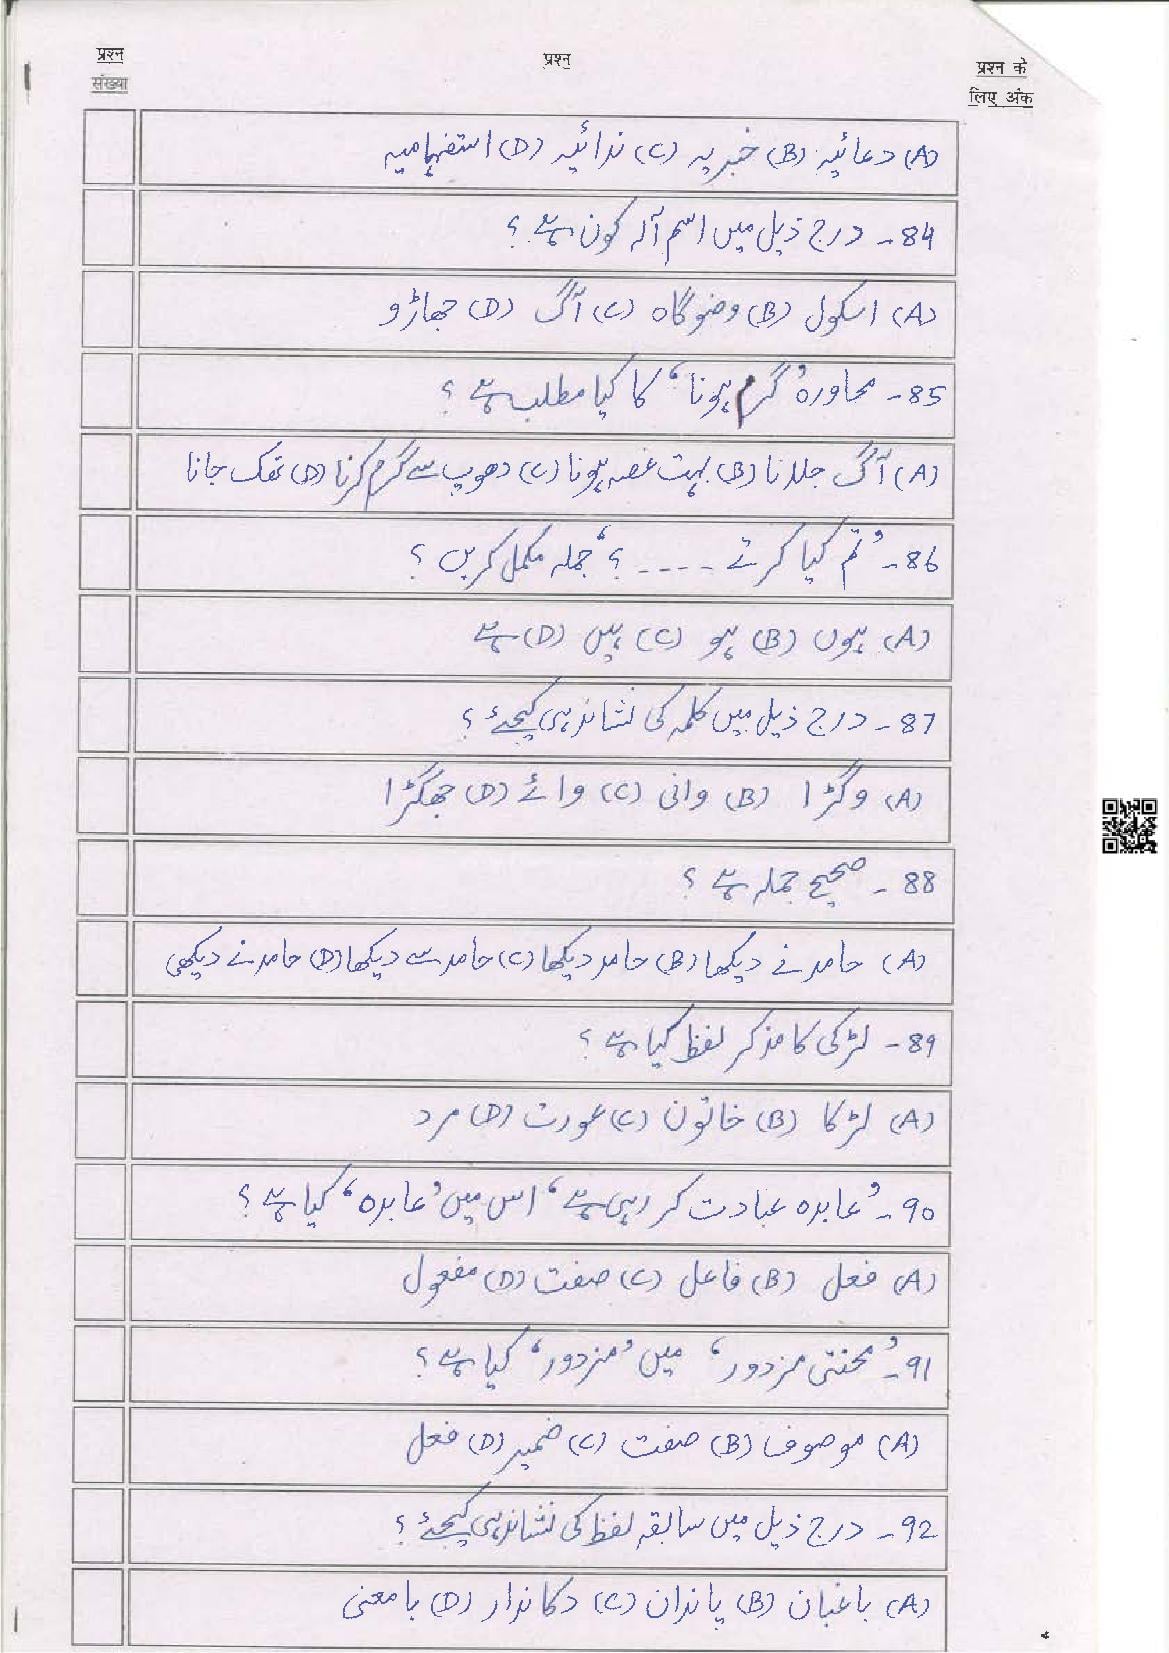 प्रश्न संख्या
प्रश्न
प्रश्न के लिए अंक
(A) دعائیہ (B) خبریہ (C) ندائیہ (D) استفہامیہ
84- درج ذیل میں اسم آلہ کون ہے؟
(A) اسکول (B) وضوگاہ (C) آگ (D) جھاڑو
85- محاورہ ’گرم ہونا‘ کا کیا مطلب ہے؟
(A) آگ جلانا (B) بہت غصہ ہونا (C) دھوپ سے گرم کرنا (D) تھک جانا
86- ’تم کیا کرتے ----؟‘ جملہ مکمل کریں؟
(A) ہوں (B) ہو (C) ہیں (D) ہے
87- درج ذیل میں کلمہ کی نشاندہی کیجئے؟
(A) وگڑا (B) وانی (C) وائے (D) جھگڑا
88- صحیح جملہ ہے؟
(A) حامد نے دیکھا (B) حامد دیکھا (C) حامد سے دیکھا (D) حامد نے دیکھی
89- لڑکی کا مذکر لفظ کیا ہے؟
(A) لڑکا (B) خاتون (C) عورت (D) مرد
90- ’عابدہ عبادت کر رہی ہے‘ اس میں ’عابدہ‘ کیا ہے؟
(A) فعل (B) فاعل (C) صفت (D) مفعول
91- ’محنتی مزدور‘ میں ’مزدور‘ کیا ہے؟
(A) موصوف (B) صفت (C) ضمیر (D) فعل
92- درج ذیل میں سابقہ لفظ کی نشاندہی کیجئے؟
(A) باغبان (B) پاندان (C) دکاندار (D) بامعنی